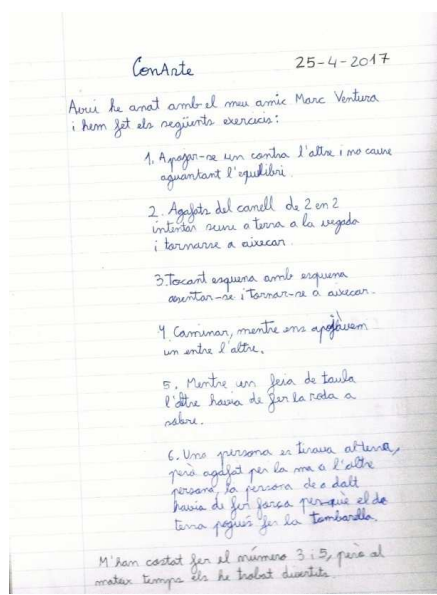 ConArte 25-4-2017
Avui he anat amb el meu amic Marc Ventura
i hem fet els següents exercicis:
1. Apojar-se un contra l'altre i no caure
aguantant l'equilibri.
2. Agafats del canell de 2 en 2
intentar seure a terra a la vegada
i tornarse a aixecar.
3. Tocant esquena amb esquena
asentar-se i tornar-se a aixecar.
4. Caminar, mentre ens apojàvem
un entre l'altre.
5. Mentre un feia de taula
l'altre havia de fer la roda a
sobre.
6. Una persona es tirava al terra,
però agafat per la ma a l'altre
persona, la persona de a dalt
havia de fer força perquè el de
terra pogués fer la tombarella.
M'han costat fer el número 3 i 5, però al
mateix temps els he trobat divertits.